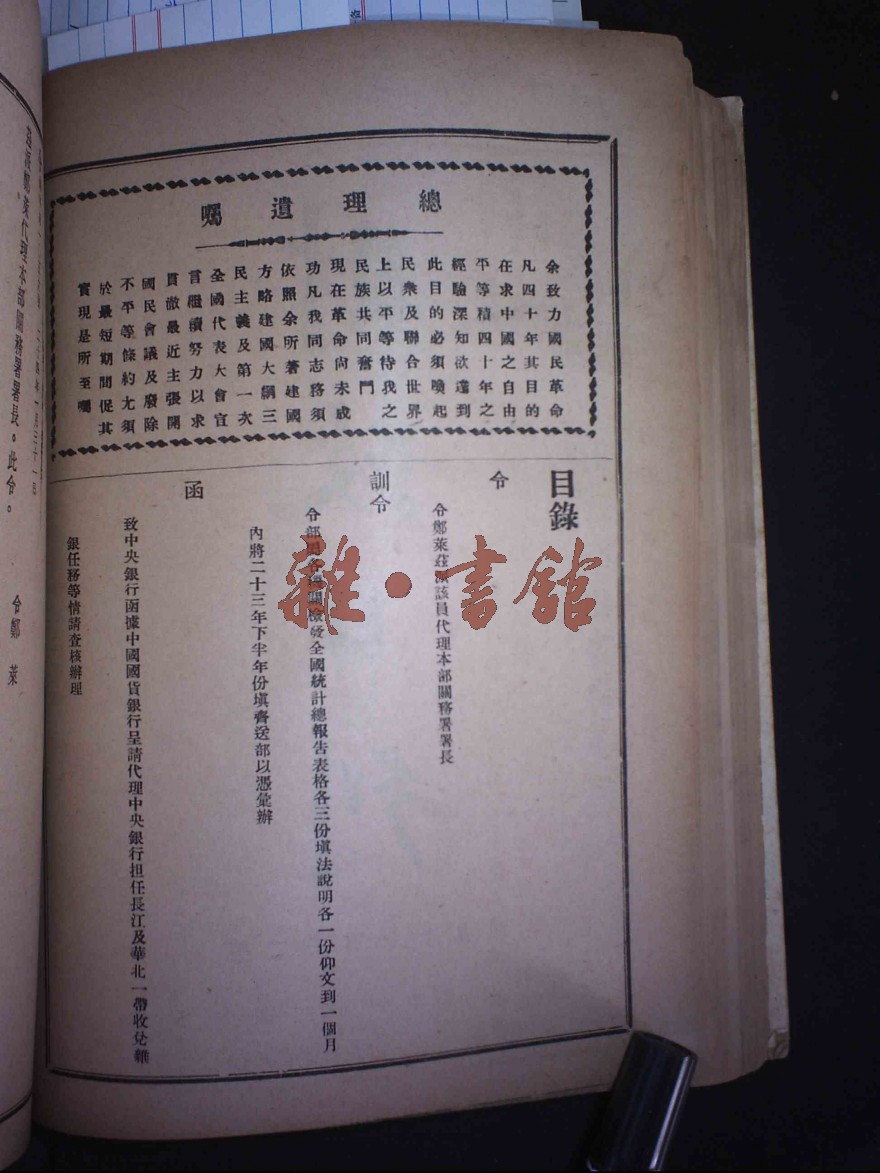 總理遺囑
余致力國民革命
凡四十年其目的
在求中國之自由
平等積四十年之
經驗深知欲達到
此目的必須喚起
民衆及聯合世界
上以平等待我之
民族共同奮鬥
現在革命尙未成
功凡我同志務須
依照余所著建國
方略建國大綱三
民主義及第一次
全國代表大會宣
言繼續努力以求
貫徹最近主張開
國民會議及廢除
不平等條約尤須
於最短期間促其
實現是所至囑
目錄
令
令鄭萊茲派該員代理本部關務署署長
訓令
令部屬各機關檢發全國統計總報告表格各三份塡法說明各一份仰文到一個月
內將二十三年下半年份塡齊送部以憑彙辦
函
致中央銀行函據中國國貨銀行呈請代理中央銀行担任長江及華北一帶收兌雜
銀任務等情請查核辦理
雜·書館
令鄭萊
茲派鄭萊代理本部關務署署長。此令。